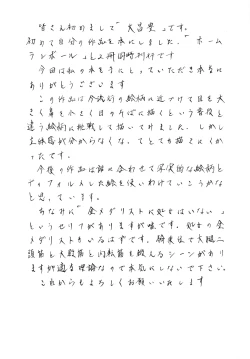 皆さん初めまして「大昌堂」です。
初めて自分の作品を本にしました。「ホーム
テンボール」上下同時刊行です
今回は私の本を手にとっていただき本当に
ありがとうございます
この作品は今流行の絵柄に近づけて目を大
きく鼻を小さく日々何ばに描くという普段と
違う絵柄に挑戦して描いてみました。しかし
立体感が分からなくな、てとても描きにくか
ったです。
今後の作品は話に合わせて写実的な絵柄と
ディフォルメした絵を使いわけていこうかな
と思、ています。
ちなみに「金メダリストに処女はいない」
というセリフがありますが嘘です。処女の金
メダリストもいるはずです。騎乗位で大腿二
頭筋と大殿筋と内転筋を鍛えるシーンがあり
ますが適当理論なので本気にしないで下さい。
これからもよろしくお願いいたします